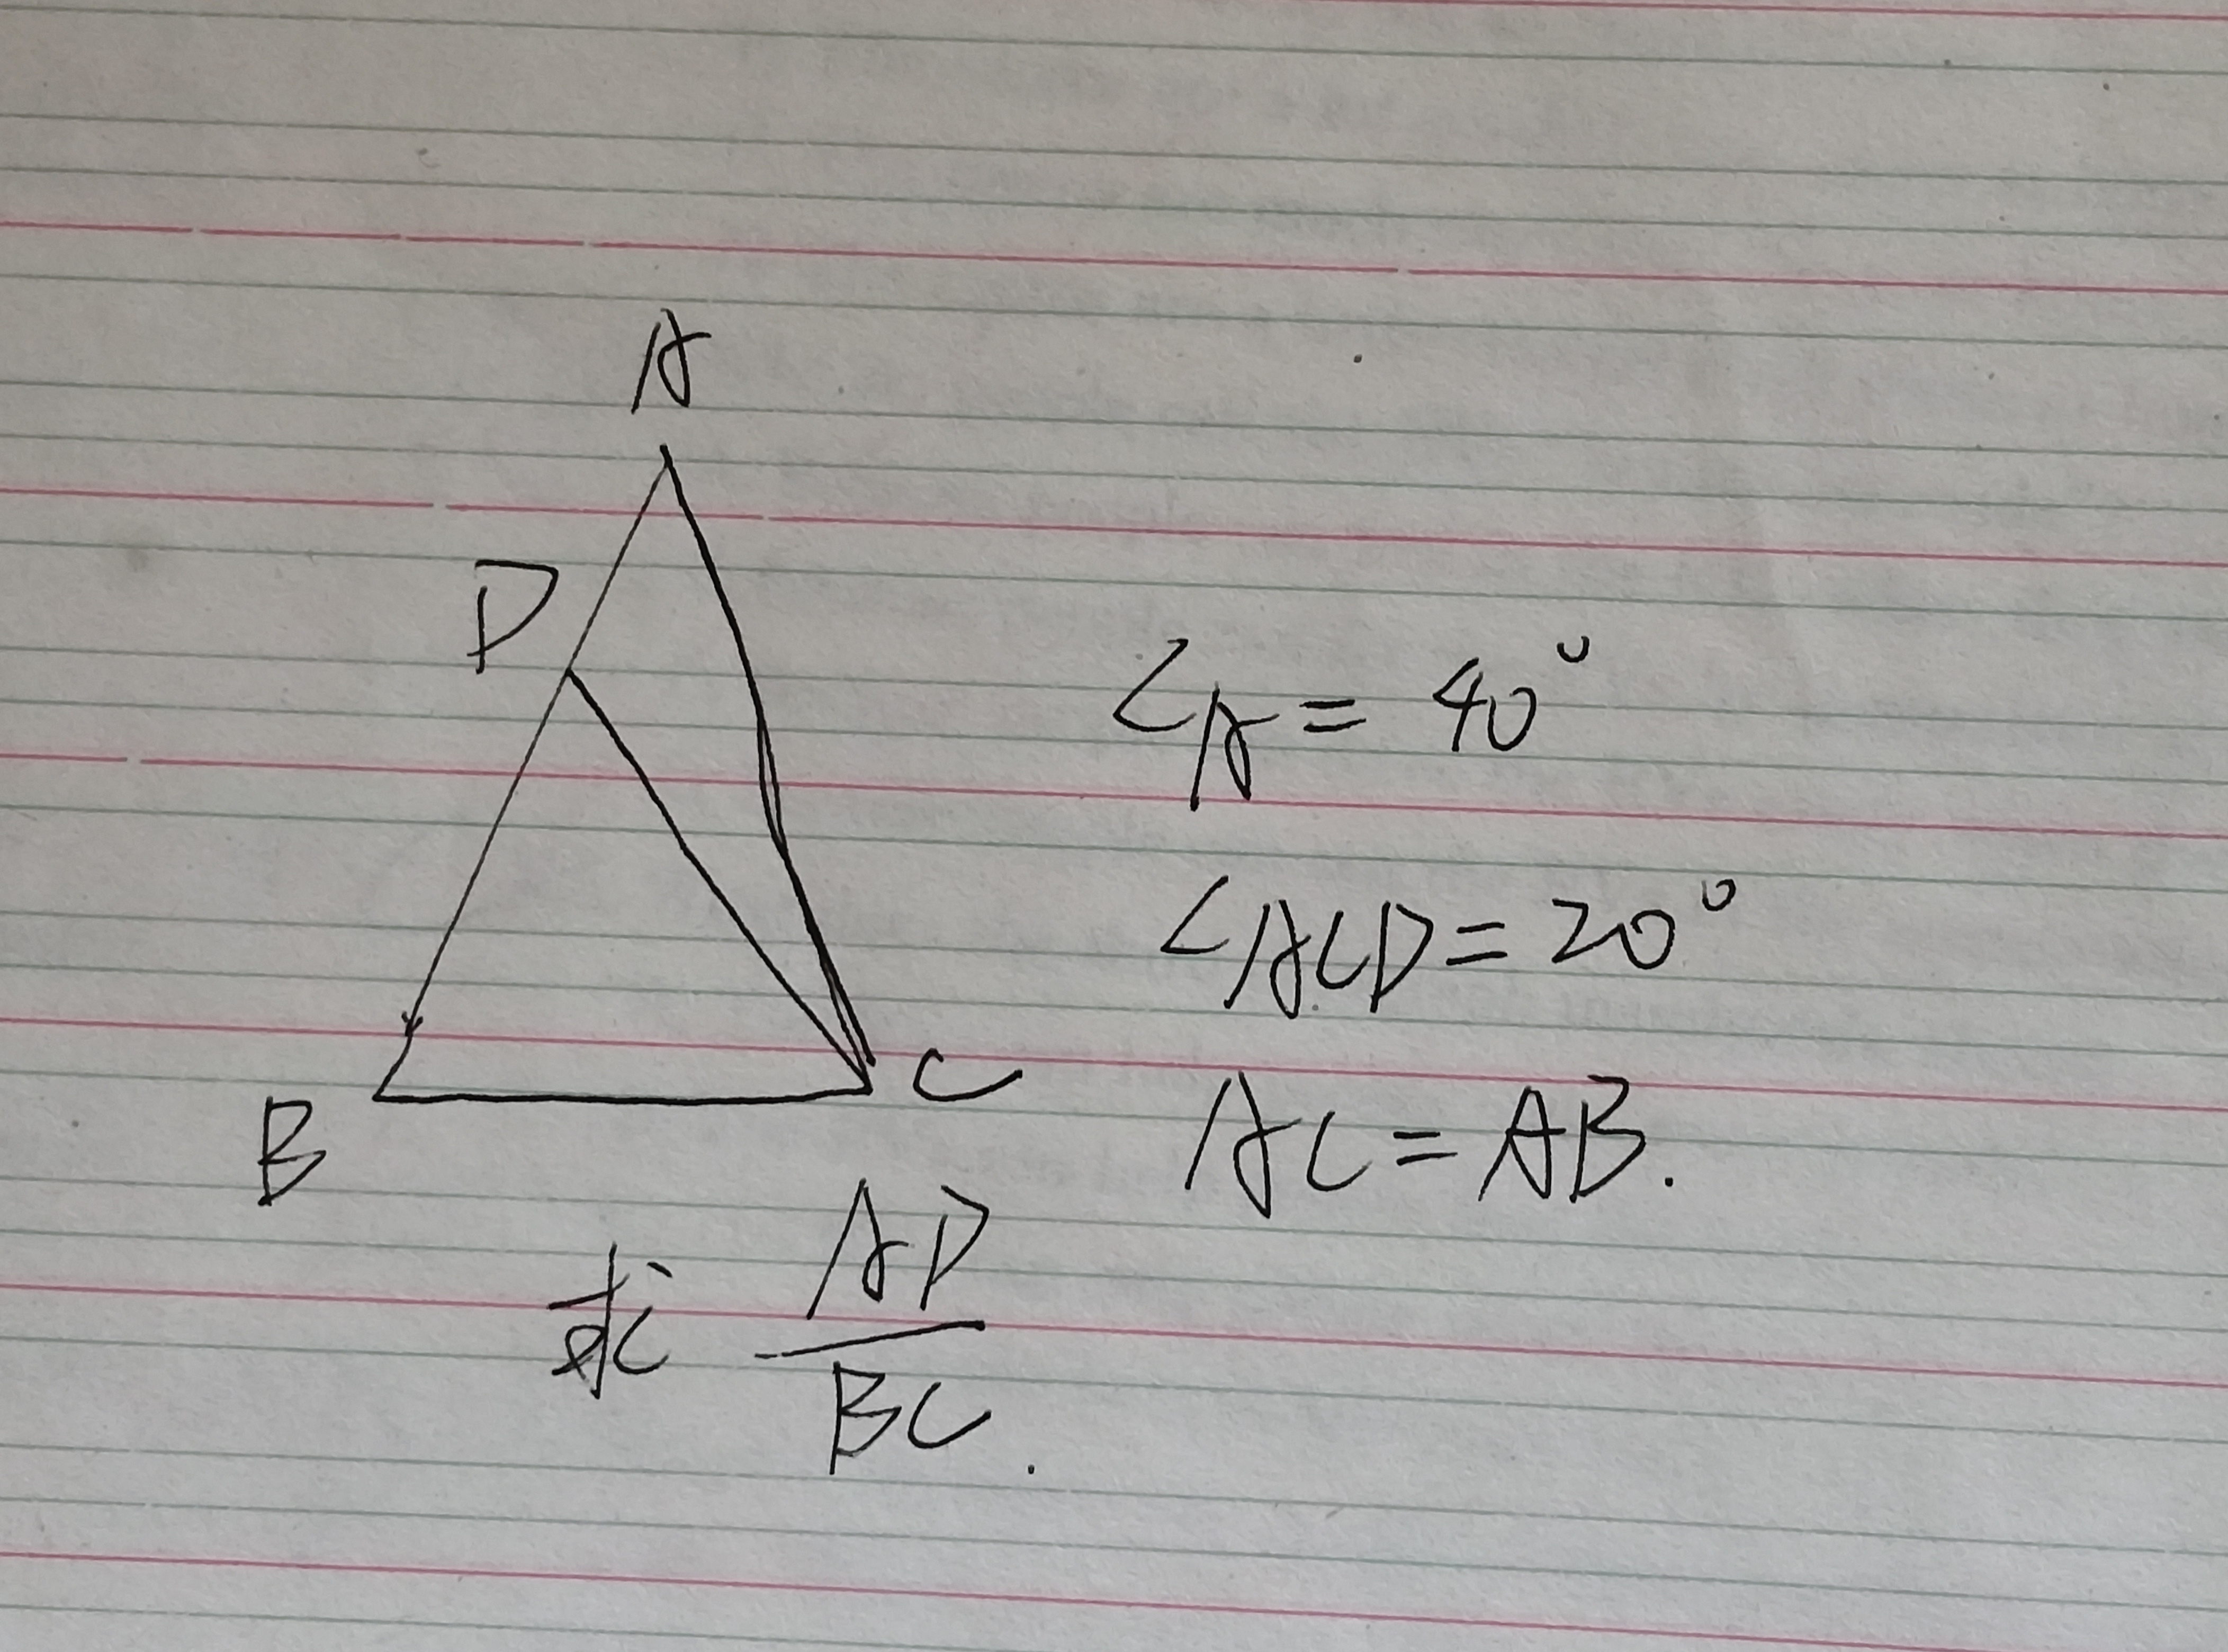 A
D
∠A = 40°
∠ACD = 20°
C
B
AC = AB.
求 AD/BC.